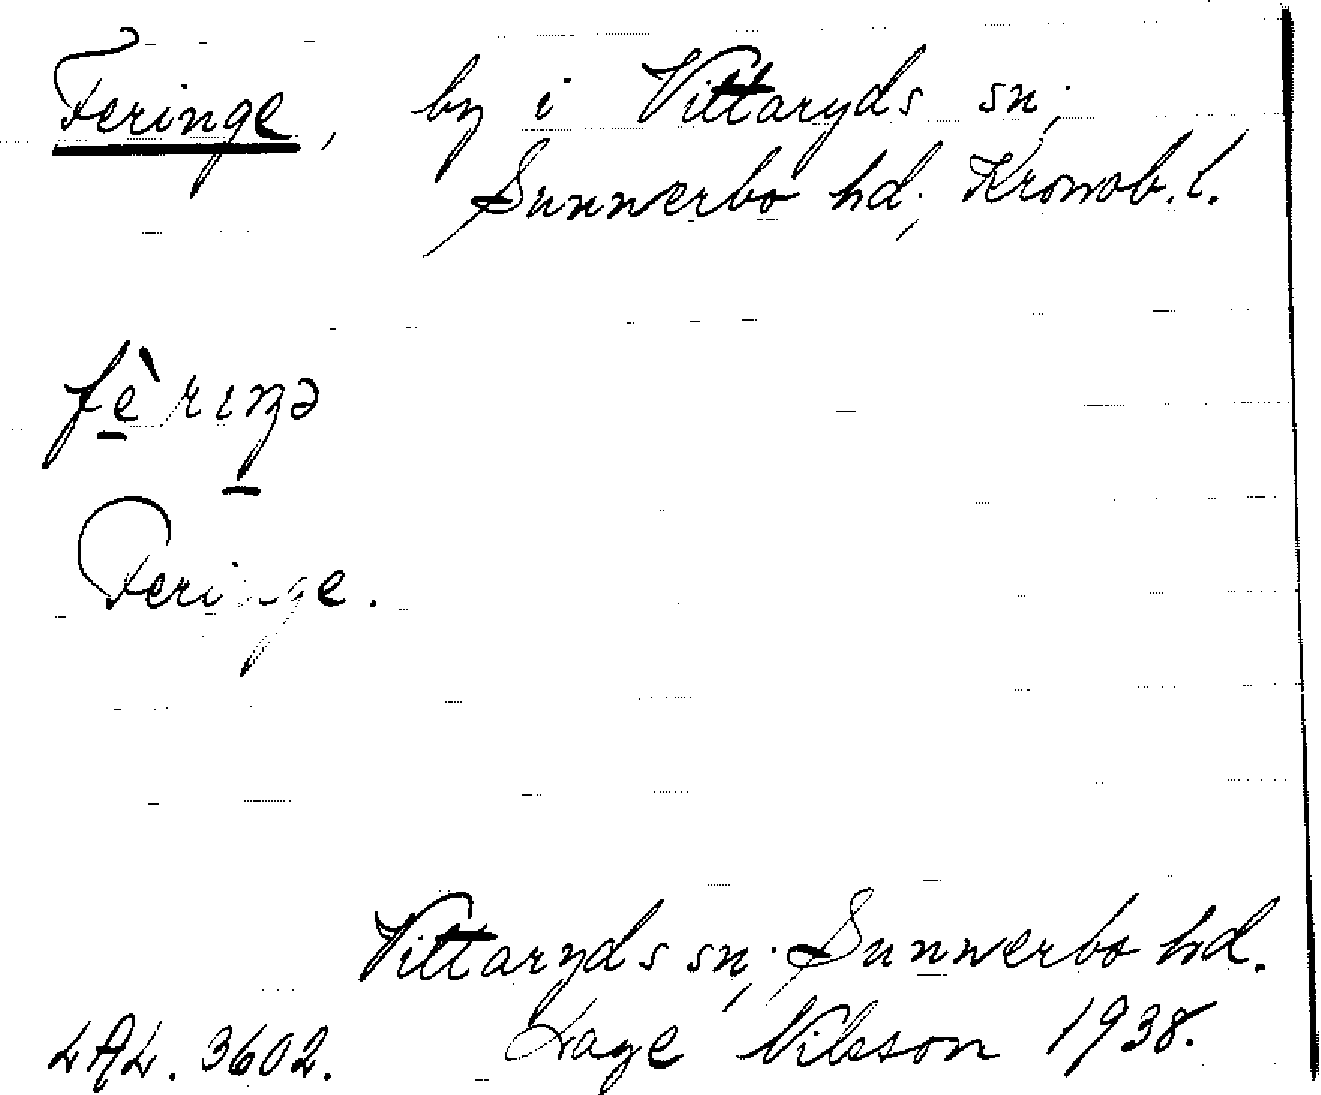 Feringe, by i Vittaryds sn;
Sunnerbo hd; Kronob. l.
fèriŋə
Feringe.
Vittaryds sn; Sunnerbo hd.
LAL. 3602. Lage Nilsson 1938.